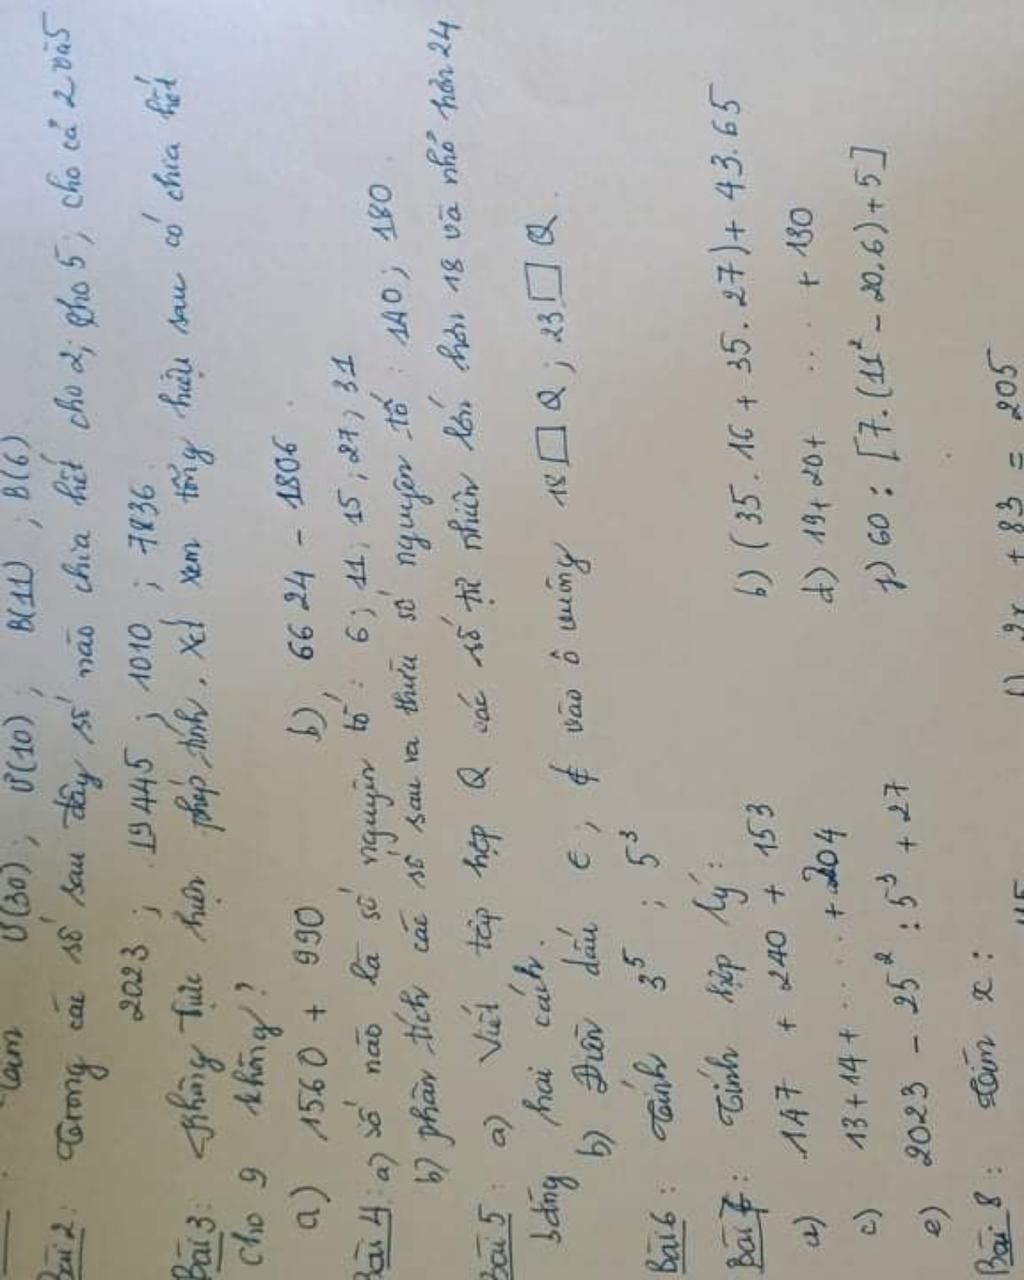 Ư(30); Ư(10); B(11); B(6)
Bài 2: Trong các số sau đây số nào chia hết cho 2; cho 5; cho cả 2 và 5
2023; 19445; 1010; 7836
Bài 3: Không thực hiện phép tính. Xét xem tổng hiệu sau có chia hết
cho 9 không?
a) 1560 + 990 b) 6624 - 1806
Bài 4: a) Số nào là số nguyên tố: 6; 11; 15; 27; 31
b) phân tích các số sau ra thừa số nguyên tố: 140; 180
Bài 5: a) Viết tập hợp Q các số tự nhiên lớn hơn 18 và nhỏ hơn 24
bằng hai cách.
b) Điền dấu ∈, ∉ vào ô vuông 18 □ Q; 23 □ Q.
Bài 6: Tính 3⁵; 5³
Bài 7: Tính hợp lý:
a) 147 + 240 + 153 b) (35.16 + 35.27) + 43.65
c) 13+14+ .... +204 d) 19+20+ ... + 130
e) 2023 - 25² : 5³ + 27 f) 60 : [7.(11² - 20.6)+5]
Bài 8: Tìm x:
2x + 83 = 205